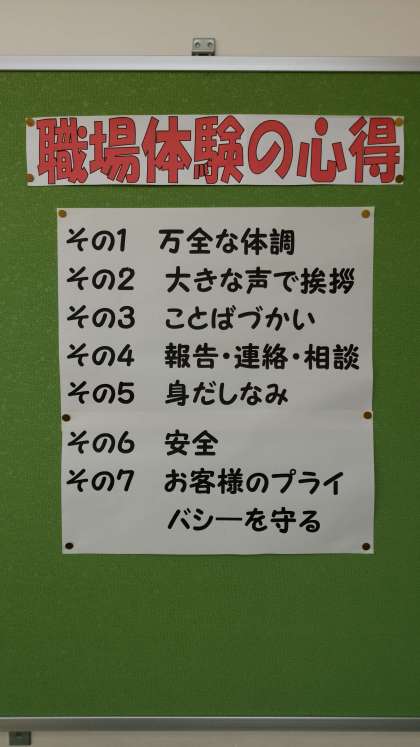 職場体験の心得
その1　万全な体調
その2　大きな声で挨拶
その3　ことばづかい
その4　報告・連絡・相談
その5　身だしなみ
その6　安全
その7　お客様のプライ
バシーを守る